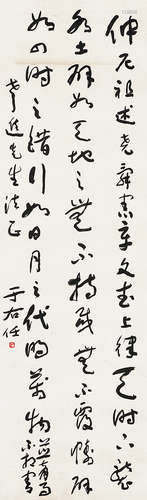 仲尼祖述堯舜憲章文武上律天時下襲
水土辟如天地之無不持載無不覆幬辟
如四時之錯行如日月之代明萬物並育而
不相害
先生法正
于右任